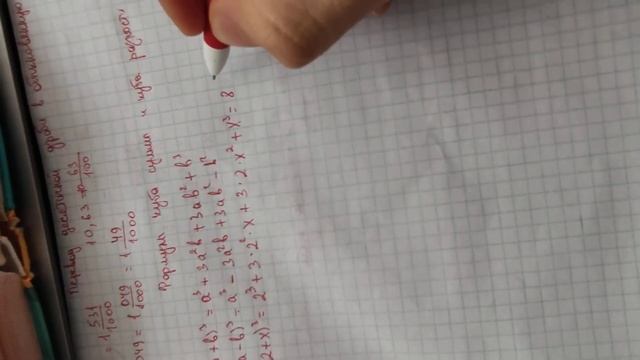 Перевод десятичной дроби в обыкновенную
10,63 = 10 63/100
= 1 531/1000
049 = 1 049/1000 = 1 49/1000
Формулы куба суммы и куба разности
+ b)³ = a³ + 3a²b + 3ab² + b³
a - b)³ = a³ - 3a²b + 3ab² - b³
2 + x)³ = 2³ + 3·2²·x + 3·2·x² + x³ = 8